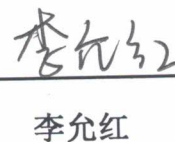 李允红
李允红